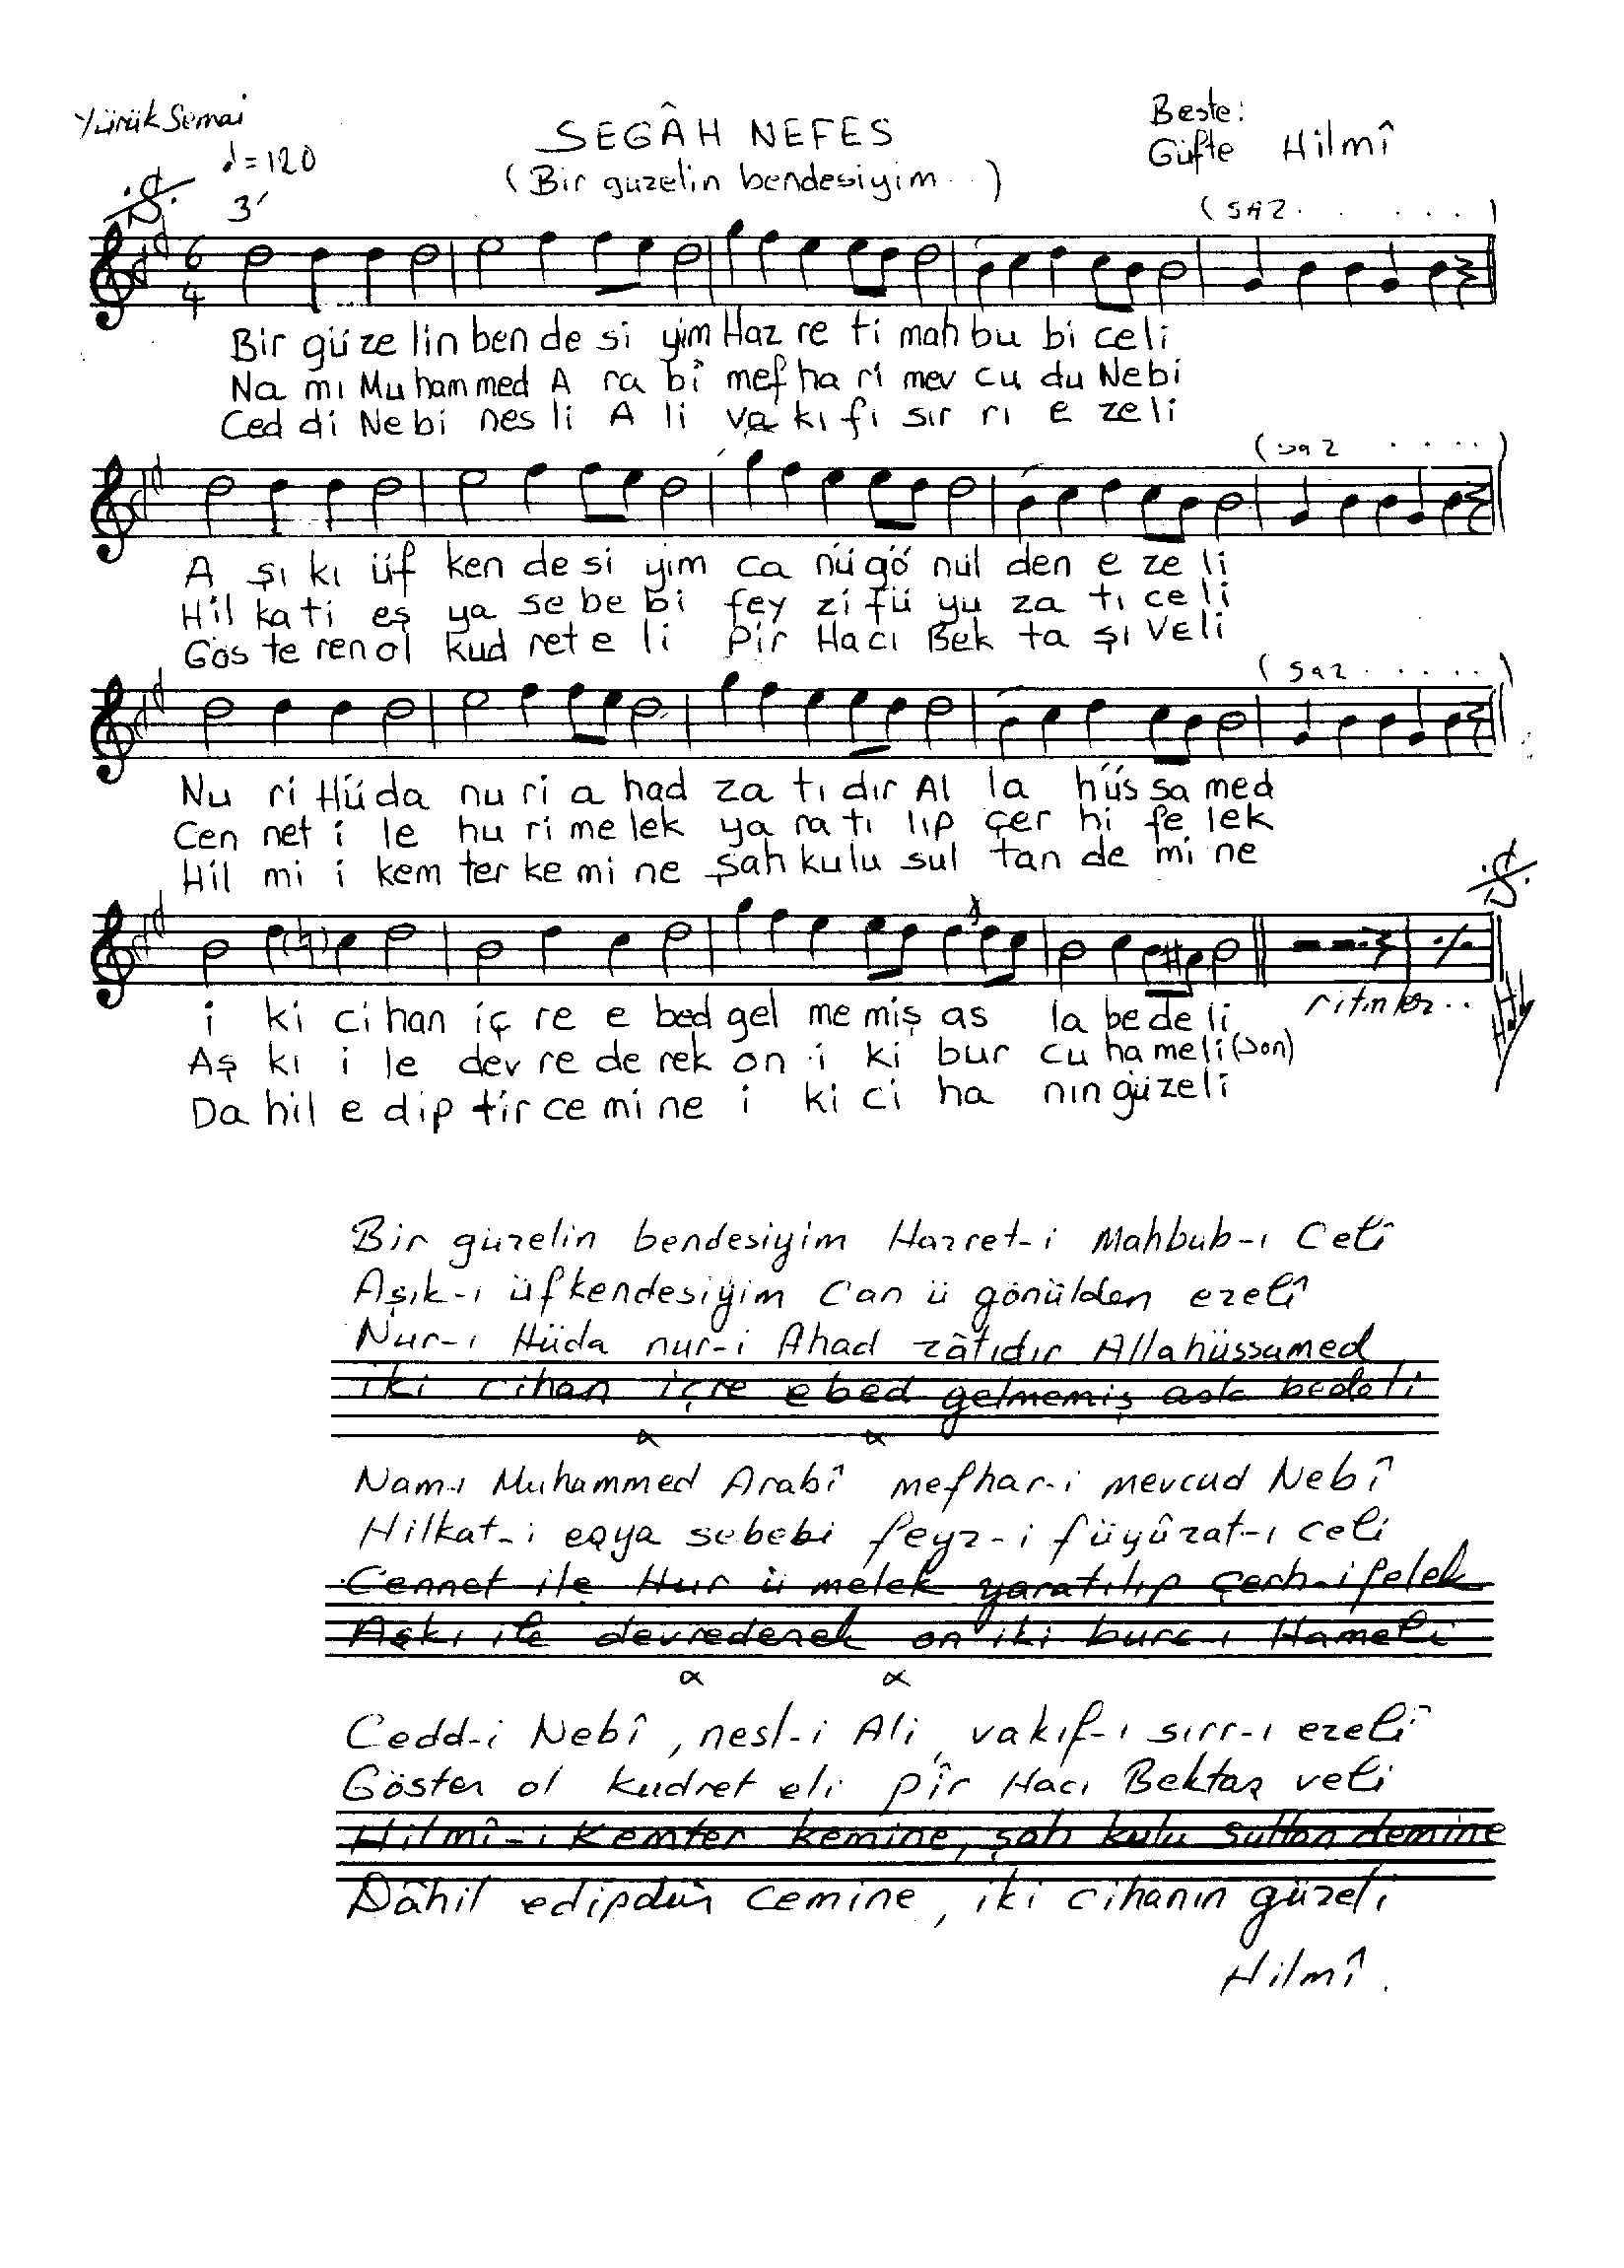 Yürük Semai
SEGÂH NEFES
Beste:
Güfte Hilmî
♩=120
(Bir güzelin bendesiyim..)
3'
(SAZ. . . . .)
6
4
Bir gü ze lin ben de si yim Haz re ti mah bu bi celi
Na mı Mu ham med A ra bî mef ha ri mev cu du Nebi
Ced di Ne bi nes li A li va kı fı sır rı e zeli
(saz . . . .)
A şı kı üf ken de si yim ca nü gö nül den e ze li
Hil ka ti eş ya se be bi fey zi fü yu za tı celi
Gös te ren ol kud ret e li Pir Hacı Bek ta şı Veli
(saz . . . . .)
Nu ri Hü da nu ri a had za tı dır Al la hüs sa med
Cen net i le hu ri me lek ya ra tı lıp çer hi fe lek
Hil mi i kem ter ke mi ne Şah kulu sul tan de mi ne
ritmler..
i ki ci han iç re e bed gel me miş as la be de li
Aş kı i le dev re de rek on i ki bur cu ha meli (son)
Da hil e dip tir ce mi ne i ki ci ha nın güzeli
Bir güzelin bendesiyim Hazret-i Mahbub-ı Celî
Aşık-ı üfkendesiyim Can ü gönülden ezelî
Nur-ı Hüda nur-i Ahad zâtıdır Allahüssamed
iki cihan içre ebed gelmemiş asla bedeli
Nam-ı Muhammed Arabî mefhar-i mevcud Nebî
Hilkat-i eşya sebebi feyz-i füyûzat-ı celi
Cennet ile Hur ü melek yaratılıp çerh-i felek
Aşkı ile devrederek on iki burc-ı Hameli
Cedd-i Nebî, nesl-i Ali, vakıf-ı sırr-ı ezelî
Göster ol kudret eli pîr Hacı Bektaş veli
Hilmî-i Kemter kemine, şah kulu Sultan demine
Dâhil edipdür cemine, iki cihanın güzeli
Hilmî.